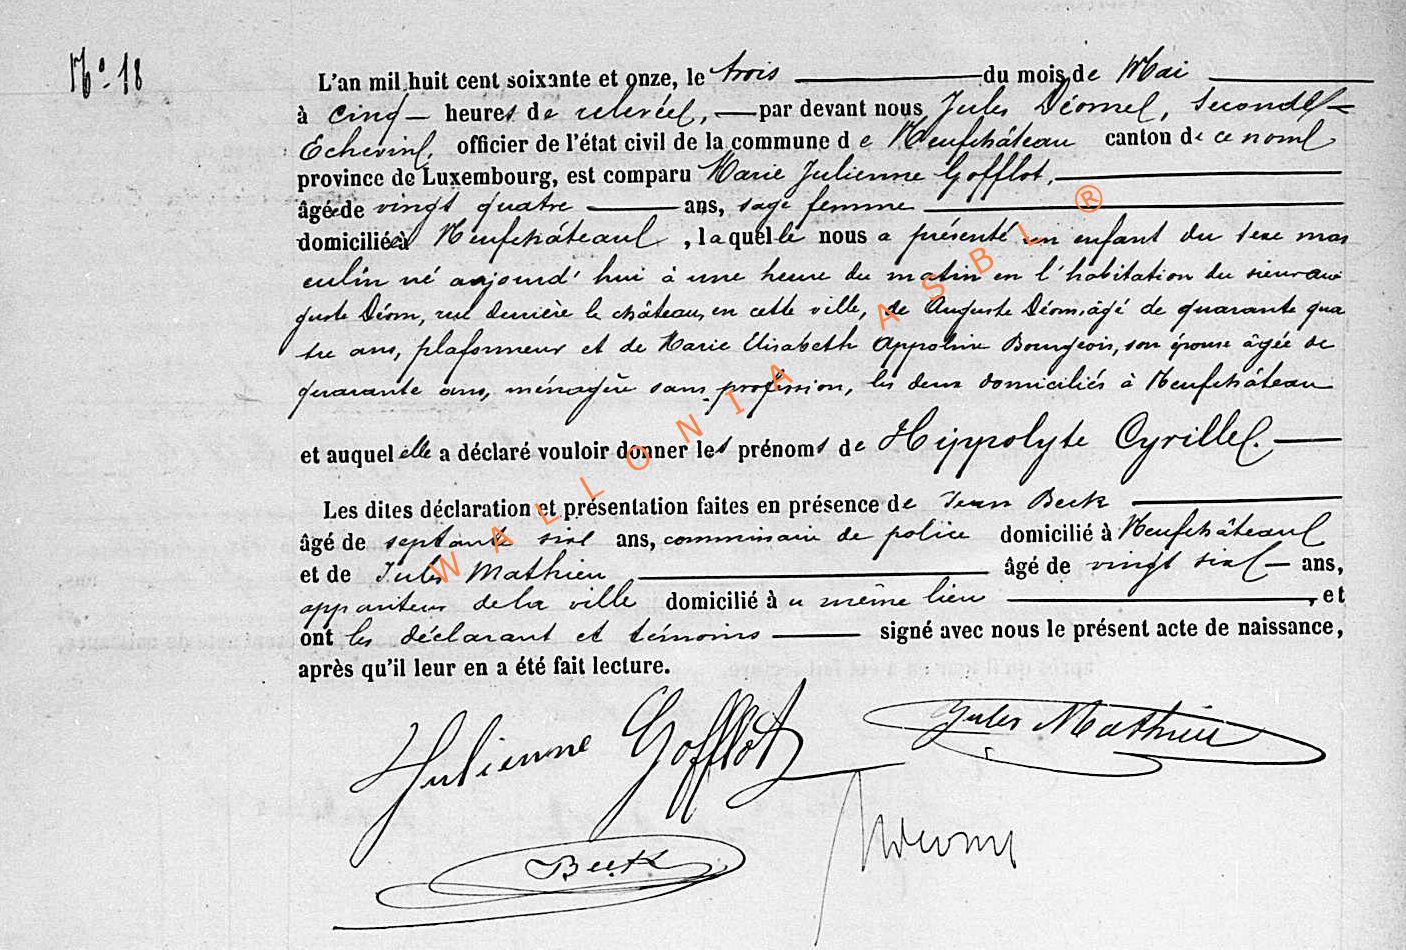 No. 18
L'an mil huit cent soixante et onze, le trois du mois de Mai
à cinq heures de relevée, par devant nous Jules Déome, Second
Echevin, officier de l'état civil de la commune de Neufchâteau canton de ce nom
province de Luxembourg, est comparu Marie Julienne Gofflot,
âgée de vingt quatre ans, sage femme
domiciliée à Neufchâteau, laquelle nous a présenté un enfant du sexe mas
culin né aujourd'hui à une heure du matin en l'habitation du sieur au
guste Déom, rue derrière le château, en cette ville, de Auguste Déom, âgé de quarante qua
tre ans, plafonneur et de Marie Elisabeth Appoline Bourgeois, son épouse âgée de
quarante ans, ménagère sans profession, les deux domiciliés à Neufchâteau
et auquel elle a déclaré vouloir donner les prénoms de Hippolyte Cyrille.
Les dites déclaration et présentation faites en présence de Jean Beck
âgé de septante six ans, commissaire de police domicilié à Neufchâteau
et de Jules Mathieu âgé de vingt six ans,
appariteur de la ville domicilié à u même lieu, et
ont les déclarant et témoins signé avec nous le présent acte de naissance,
après qu'il leur en a été fait lecture.
Julienne Gofflot
Jules Mathieu
Beck
WALLONIA ASBL ®